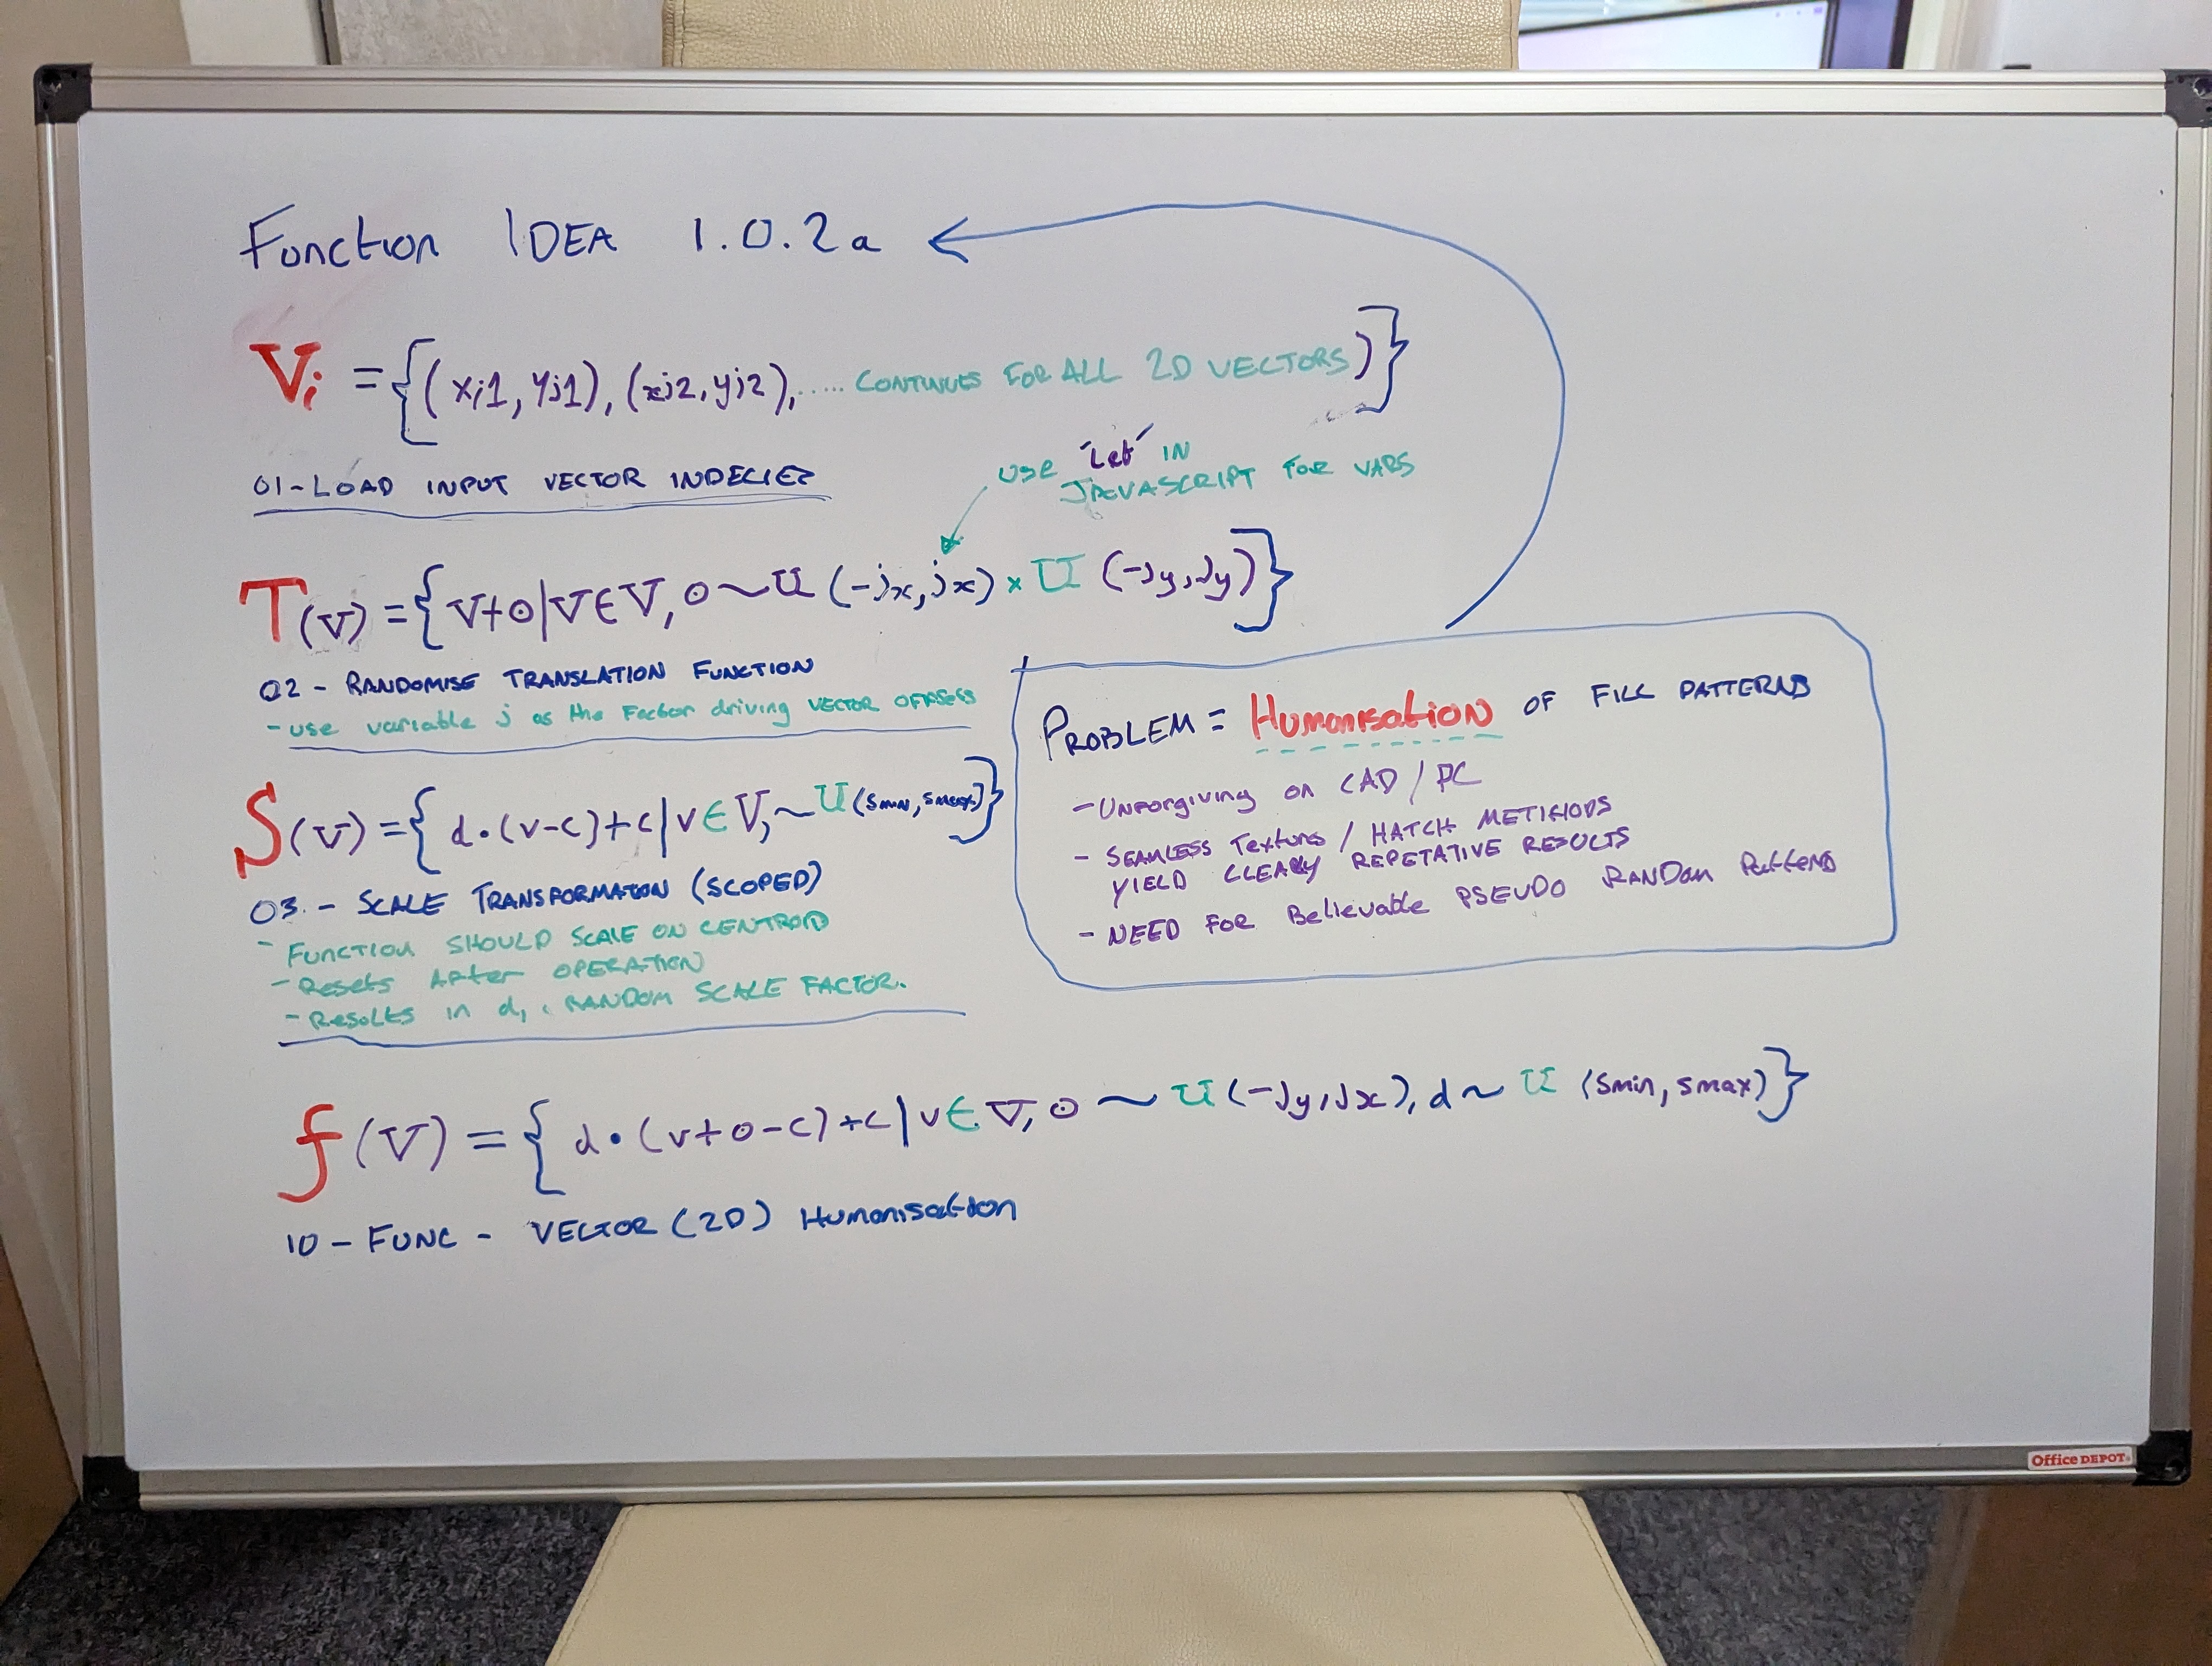 Function IDEA 1.0.2a
Vi = {(xi1, yj1), (xj2, yj2), ..... CONTINUES FOR ALL 2D VECTORS)}
01-LOAD INPUT VECTOR INDECIES
USE 'Let' IN
JAVASCRIPT FOR VARS
T(V) = {V+o|V∈V, o~U(-jx, jx) × U(-jy, jy)}
02 - RANDOMISE TRANSLATION FUNCTION
- use variable j as the Factor driving VECTOR OFFSETS
S(V) = {d•(v-c)+c|v∈V, ~U(smin, smax)}
03 - SCALE TRANSFORMATION (SCOPED)
- FUNCTION SHOULD SCALE ON CENTROID
- Resets After OPERATION
- Results in d, RANDOM SCALE FACTOR.
PROBLEM = Humanisation OF FILL PATTERNS
- Unforgiving on CAD / PC
- SEAMLESS Textures / HATCH METHODS
YIELD CLEARLY REPETATIVE RESULTS
- NEED FOR Believable PSEUDO RANDOM Patterns
f(V) = {d•(v+o-c)+c|v∈V, o~U(-jy, jx), d~U(smin, smax)}
10 - FUNC - VECTOR (2D) Humanisation
Office DEPOT